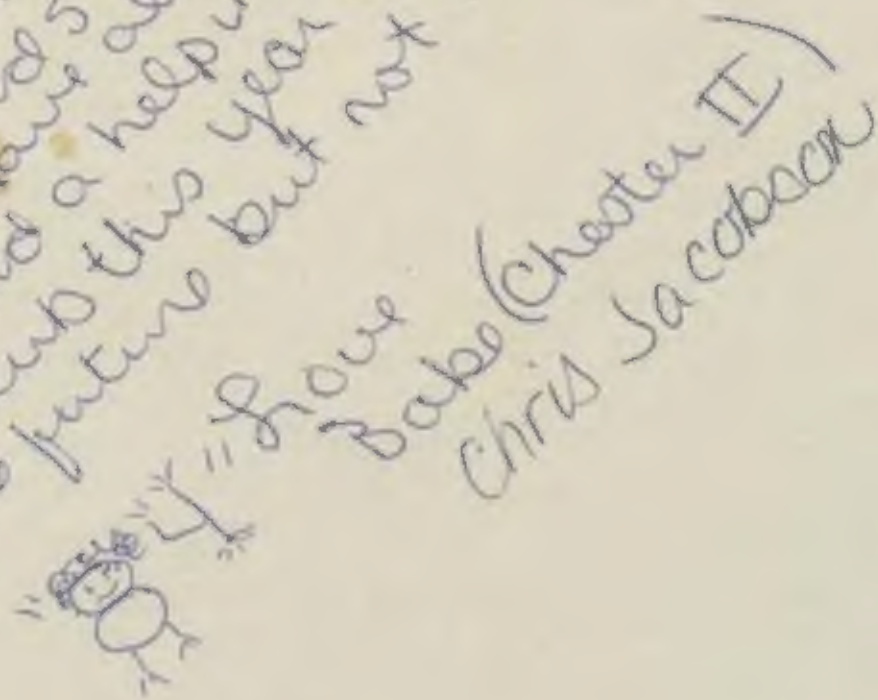 a helpin
this year
future but not
Love
Babe (Chester II)
Chris Jacobson